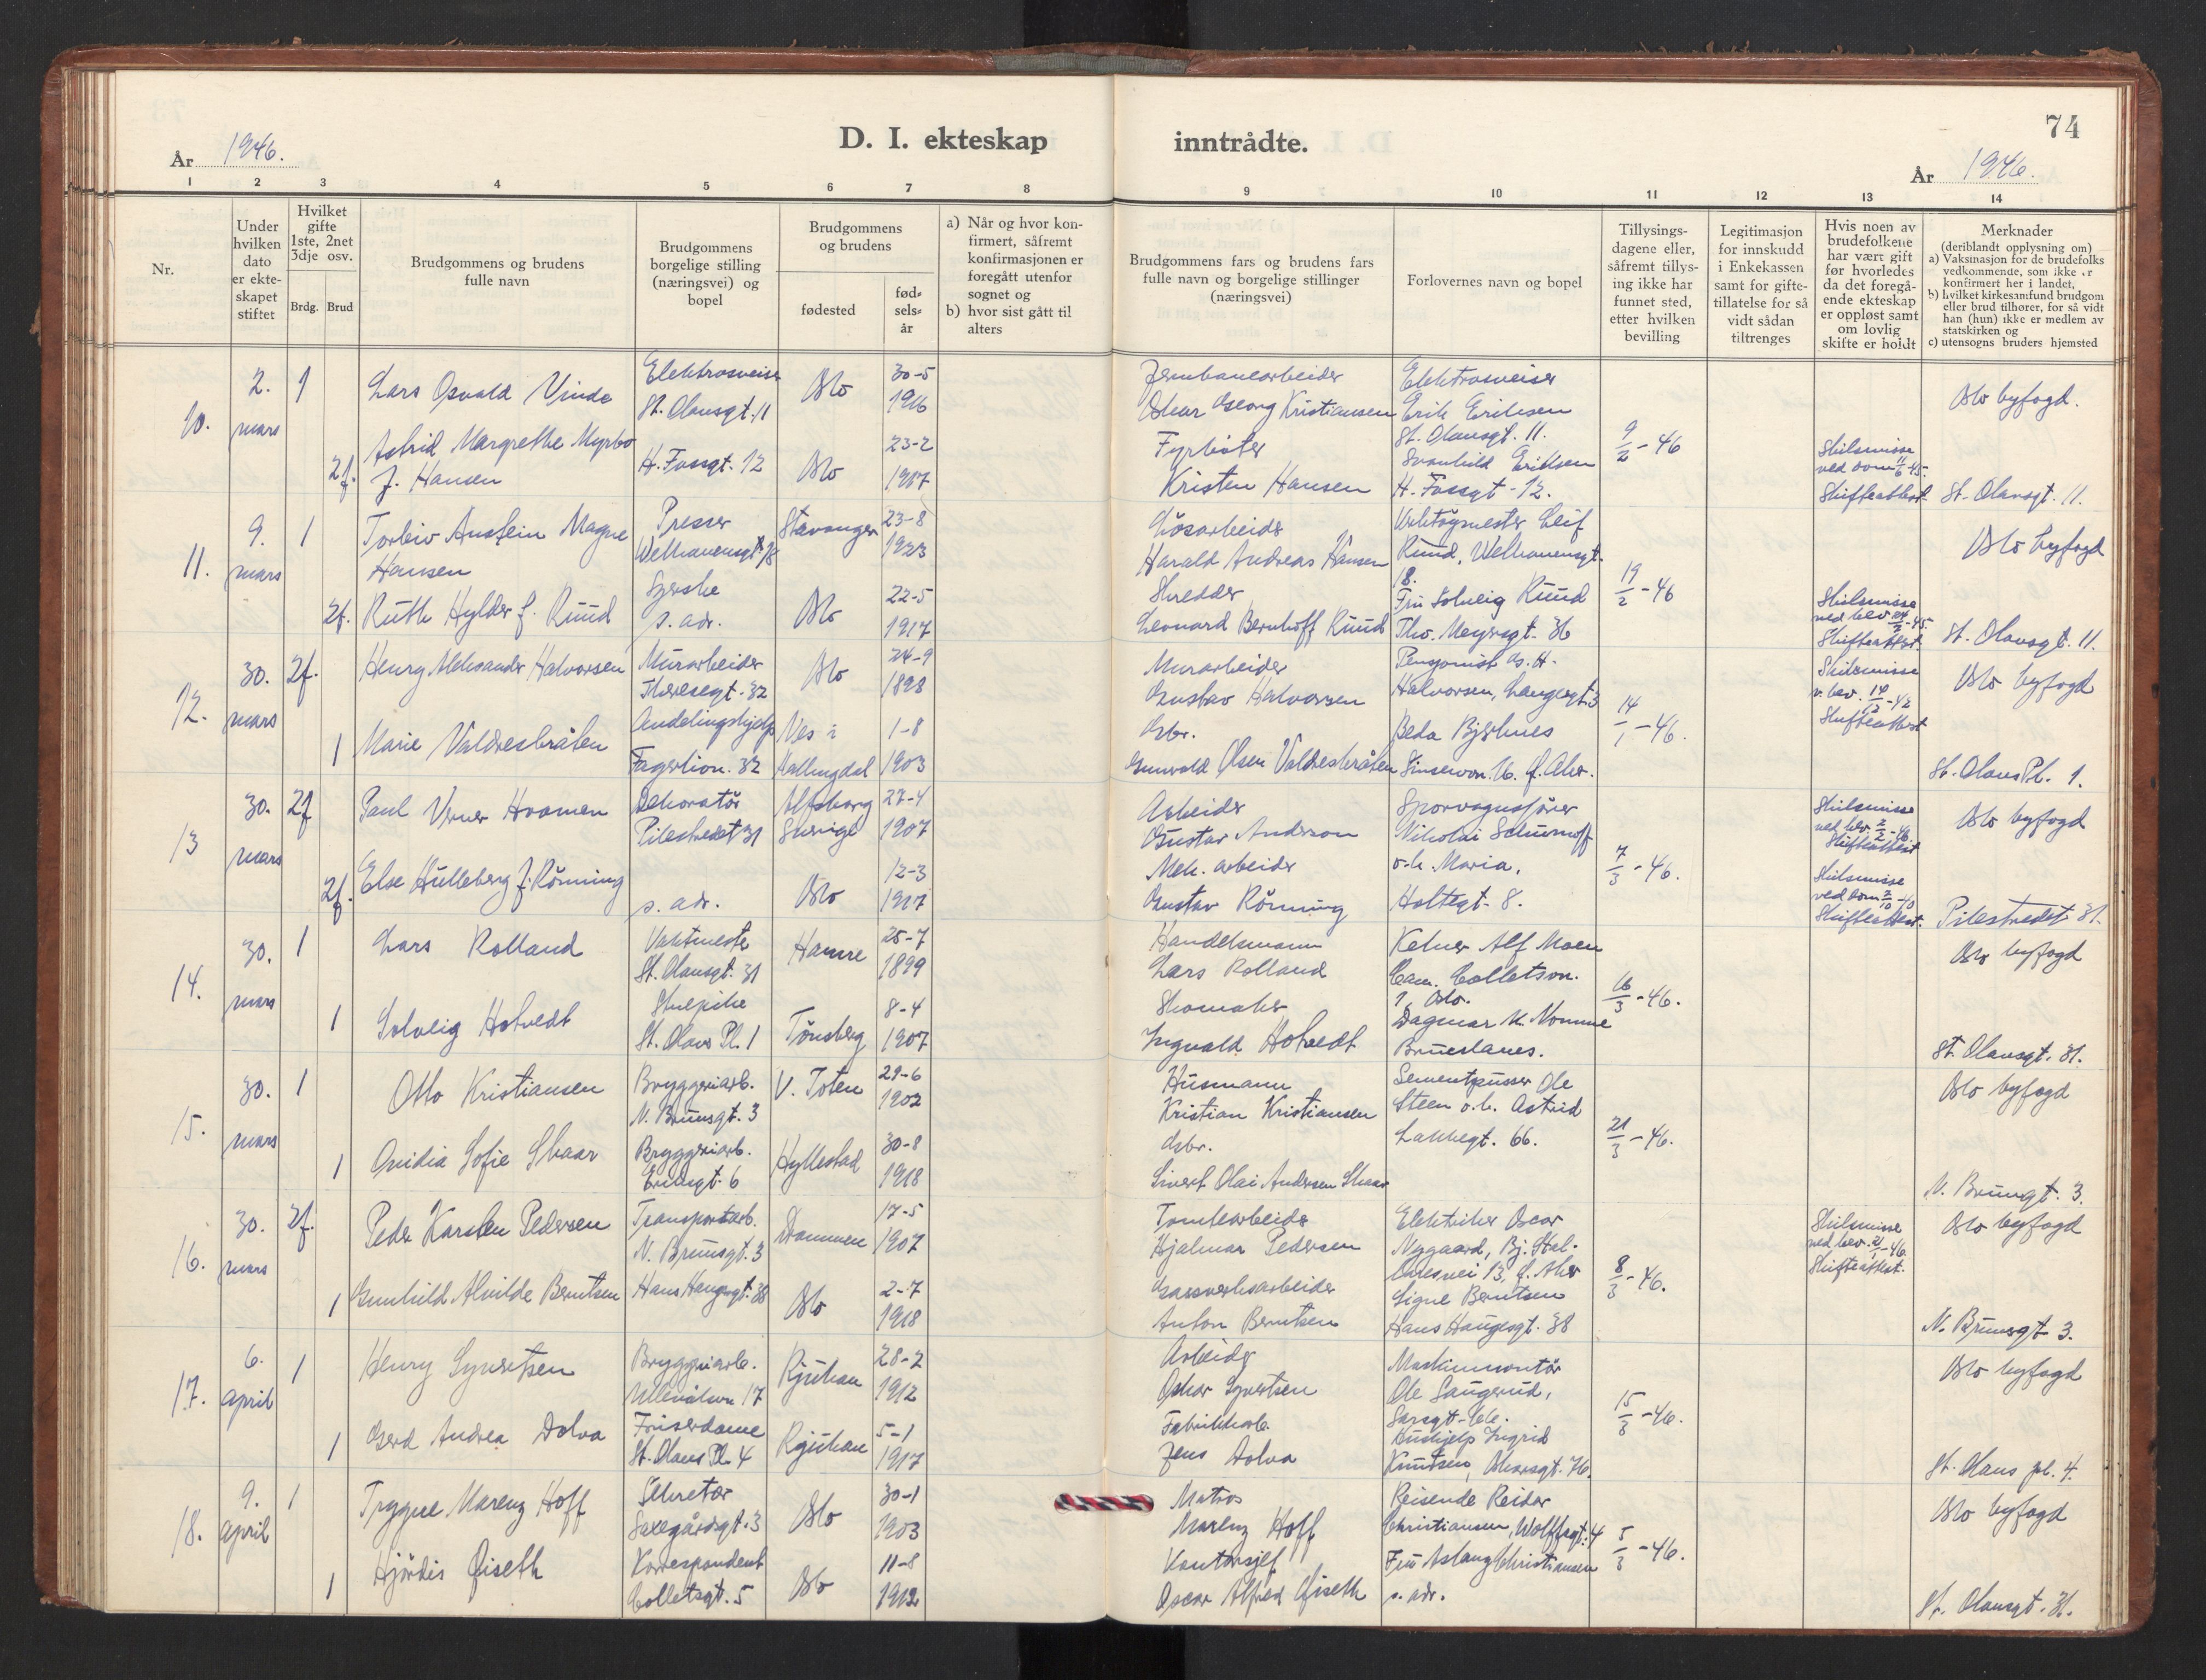 74
D. I. ekteskap inntrådte.
År 1946. År 1946.
1 2 3 4 5 6 7 8 9 10 11 12 13 14
Nr.
Under hvilken dato er ekte-skapet stiftet
Hvilket gifte 1ste, 2net 3dje osv.
Brdg. Brud
Brudgommens og brudens fulle navn
Brudgommens borgelige stilling (næringsvei) og bopel
Brudgommens og brudens
fødested
fød-sels-år
a) Når og hvor kon-firmert, såfremt konfirmasjonen er foregått utenfor sognet og
b) hvor sist gått til alters
Brudgommens fars og brudens fars fulle navn og borgelige stillinger (næringsvei)
Forlovernes navn og bopel
Tillysings-dagene eller, såfremt tillys-ing ikke har funnet sted, etter hvilken bevilling
Legitimasjon for innskudd i Enkekassen samt for gifte-tillatelse for så vidt sådan tiltrenges
Hvis noen av brudefolkene har vært gift før hvorledes da det foregå-ende ekteskap er oppløst samt om lovlig skifte er holdt
Merknader
(deriblandt opplysning om)
a) Vaksinasjon for de brudefolks vedkommende, som ikke er konfirmert her i landet,
b) hvilket kirkesamfund brudgom eller brud tilhører, for så vidt han (hun) ikke er medlem av statskirken og
c) utensogns bruders hjemsted
10. 2. mars 1 Lars Osvald Vinde Elektrosveiser St. Olavsgt. 11 Oslo 30-5 1916 Jernbanearbeider Oskar Georg Kristiansen Elektrosveiser Erik Eriksen St. Olavsgt. 11. 9/2-46 Oslo byfogd.
2f. Astrid Margrethe Myrbo f. Hansen H. Fossgt. 12 Oslo 23-2 1917 Fyrbøter Kristen Hansen Svanhild Eriksen H. Fossgt. 12. Skilsmisse ved dom 11/6-45. Skifteattest. St. Olavsgt. 11.
11. 9. mars 1 Torleiv Anstein Magne Hansen Presser Welhavensgt. 18 Stavanger 23-8 1923 Løsarbeider Harald Andreas Hansen Verktøymester Leif Ruud, Welhavensgt. 18. 19/2-46 Oslo byfogd
2f. Ruth Hylder f. Ruud Syerske s. adr. Oslo 22-5 1917 Skredder Leonard Bernhoff Ruud Fru Solveig Ruud Tho. Meyersgt. 36 Skilsmisse ved bev. Skifteattest. St. Olavsgt. 11.
12. 30. mars 2f. Henry Aleksander Halvorsen Murarbeider Theresegt. 32 Oslo 24-9 1898 Murarbeider Gustav Halvorsen Pensjonist As. H. Halvorsen, Langesgt. 3 14/1-46. Skilsmisse v. bev. 14/12-42 Skifteattest Oslo byfogd
1 Marie Valdresbråten Avdelingshjelp Fagerlion. 32 Nes i Hallingdal 1-8 1903 Gbr. Gunvald Olsen Valdresbråten Beda Bjerknes Sinsenvn. 16. Ø. Aker. St. Olavs Pl. 1.
13 30. mars 2f Paul Verner Hvamen Dekoratør Pilestredet 31 Alfsborg Sverige 27-4 1907 Arbeider Gustav Anderson Sporvognsfører Nikolai Schurnoff 7/3-46. Skilsmisse ved bev. 2/2-46. Skifteattest Oslo byfogd
2f. Else Hulleberg f. Rönning s. adr. Oslo 12-3 1917 Mek. arbeider Gustav Rönning o.h. Maria. Holtegt. 8. Skilsmisse ved dom 2/10-40 Skifteattest. Pilestredet 31.
14. 30. mars 1 Lars Rolland Vaktmester St. Olavsgt. 31 Hamre 25-7 1899 Handelsmann Lars Rolland Kelner Alf Moen Cam. Colletsvn. 1, Oslo. 16/3-46. Oslo byfogd
1 Solveig Hotvedt Stuepike St. Olavs Pl. 1 Tønsberg 8-4 1907 Skomaker Ingvald Hotvedt Dagmar M. Nomme Brunlanes. St. Olavsgt. 31.
15. 30. mars 1 Otto Kristiansen Bryggeriarb. N. Brunsgt. 3 V. Toten 29-6 1902 Husmann Kristian Kristiansen Sementpusser Ole Steen o.h. Astrid Lakkegt. 66. 21/3-46. Oslo byfogd
1 Ovidia Sofie Skaar Bryggeriarb. Hyllestad 30-8 1918 Gbr. Sivert Olai Andersen Skaar N. Brungt. 3.
16. 30. mars 2f. Peder Karsten Pedersen Transportarb. N. Brunsgt. 3 Drammen 17-5 1907 Tomtearbeider Hjalmar Pedersen Elektriker Oscar Nygaard, Bj. Stal- 13, Ø. Aker 8/3-46. Skilsmisse ved bev. Skifteattest. Oslo byfogd
1 Gunhild Alvilde Berntsen Hans Haugesgt. 38 Oslo 2-7 1918 Gassverksarbeider Anton Berntsen Signe Berntsen Hans Haugesgt. 38 N. Brunsgt. 3.
17. 6. april 1 Henry Syvertsen Bryggeriarb. Ullevålsvn 17 Rjukan 28-2 1912 Arbeider Oskar Syvertsen Maskinmontør Ole Saugerud, Sarsgt. 15/3-46. Oslo byfogd
1 Gerd Andrea Dolva Friserdame St. Olavs Pl. 4 Rjukan 5-1 1917 Fabrikkarb. Jens Dolva Hushjelp Ingrid Knutsen, Oskarsgt. 76. St. Olavs pl. 4.
18. 9. april 1 Trygve Marenz Hoff Sekretær Saxegårdsgt. 3 Oslo 30-1 1903 Matros Marenz Hoff Reisende Reidar Christiansen, Wolffsgt. 4 5/3-46. Oslo byfogd
1 Hjördis Øiseth Korrespondent Colletsgt. 5 Oslo 11-8 1912 Kontorsjef Oscar Alfred Øiseth Fru Aslaug Christiansen s. adr. St. Olavsgt. 31.